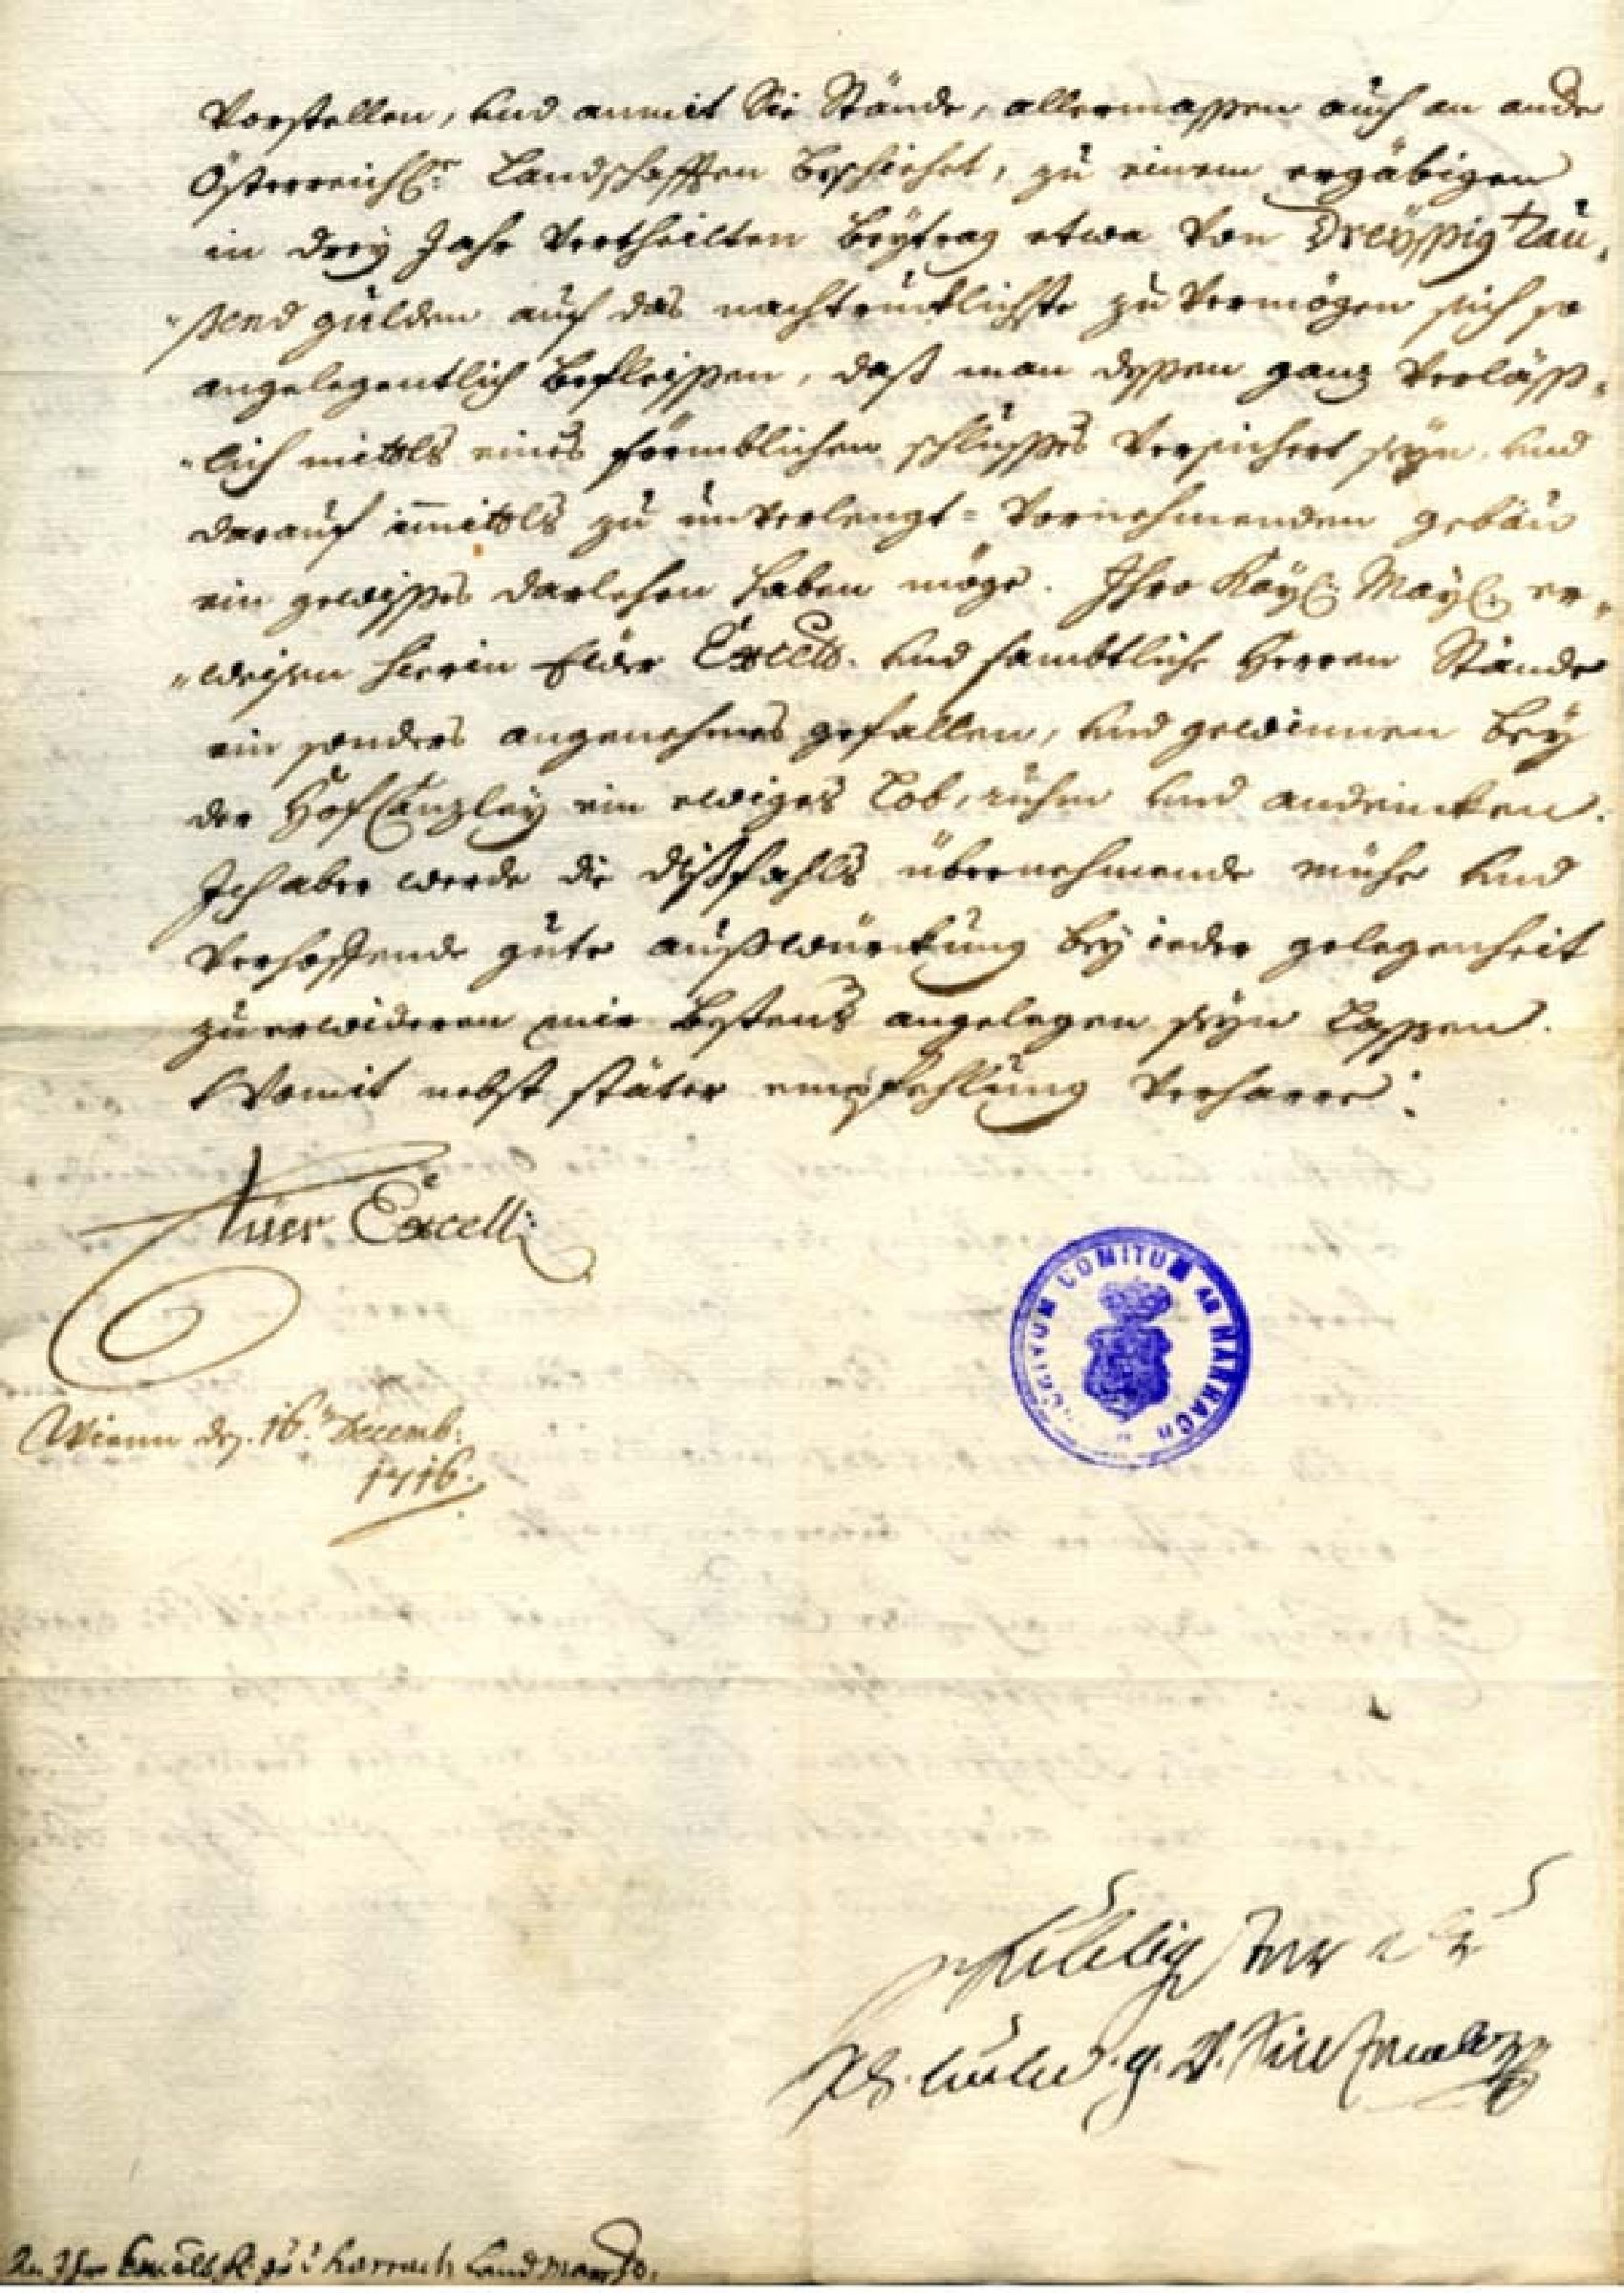 Vorstellen, und anmit die Stände, allermassen auch an ande
Österreich: Landschafften beschiehet, zu einem ergäbigen
in drey Jahr vertheilten beytrag etwa von Dreÿssig Tau-
-send gulden auf das nachtrucklichste zu vermögen sich so
angelegentlich befleissen, daß man dessen ganz verläss-
-lich mittels eines förmblichen schlusses versichert seyn, und
darauf immittels zu unverlengt-vornehmenden gebäu
ein gewisses darlehen haben möge. Ihro Kayl: Mayl: er-
-weisen hierin Euer Excell. und sambtliche Herren Stände
ein sonders angenehmes gefallen, und gewinnen bey
der Hof Canzley ein ewiges Lob, ruhm und andencken.
Ich aber werde die dißfahls übernehmende mühe und
verhoffende gute außwürckung bey ieder gelegenheit
zu erwideren mir bestens angelegen seyn lassen.
Womit nebst stäter empfehlung verharre:
Euer Excell:
Wienn den 16. Decemb:
1716.
ARCHIVUM COMITUM AB HARRACH
An Ihro Excell. Harrach Land